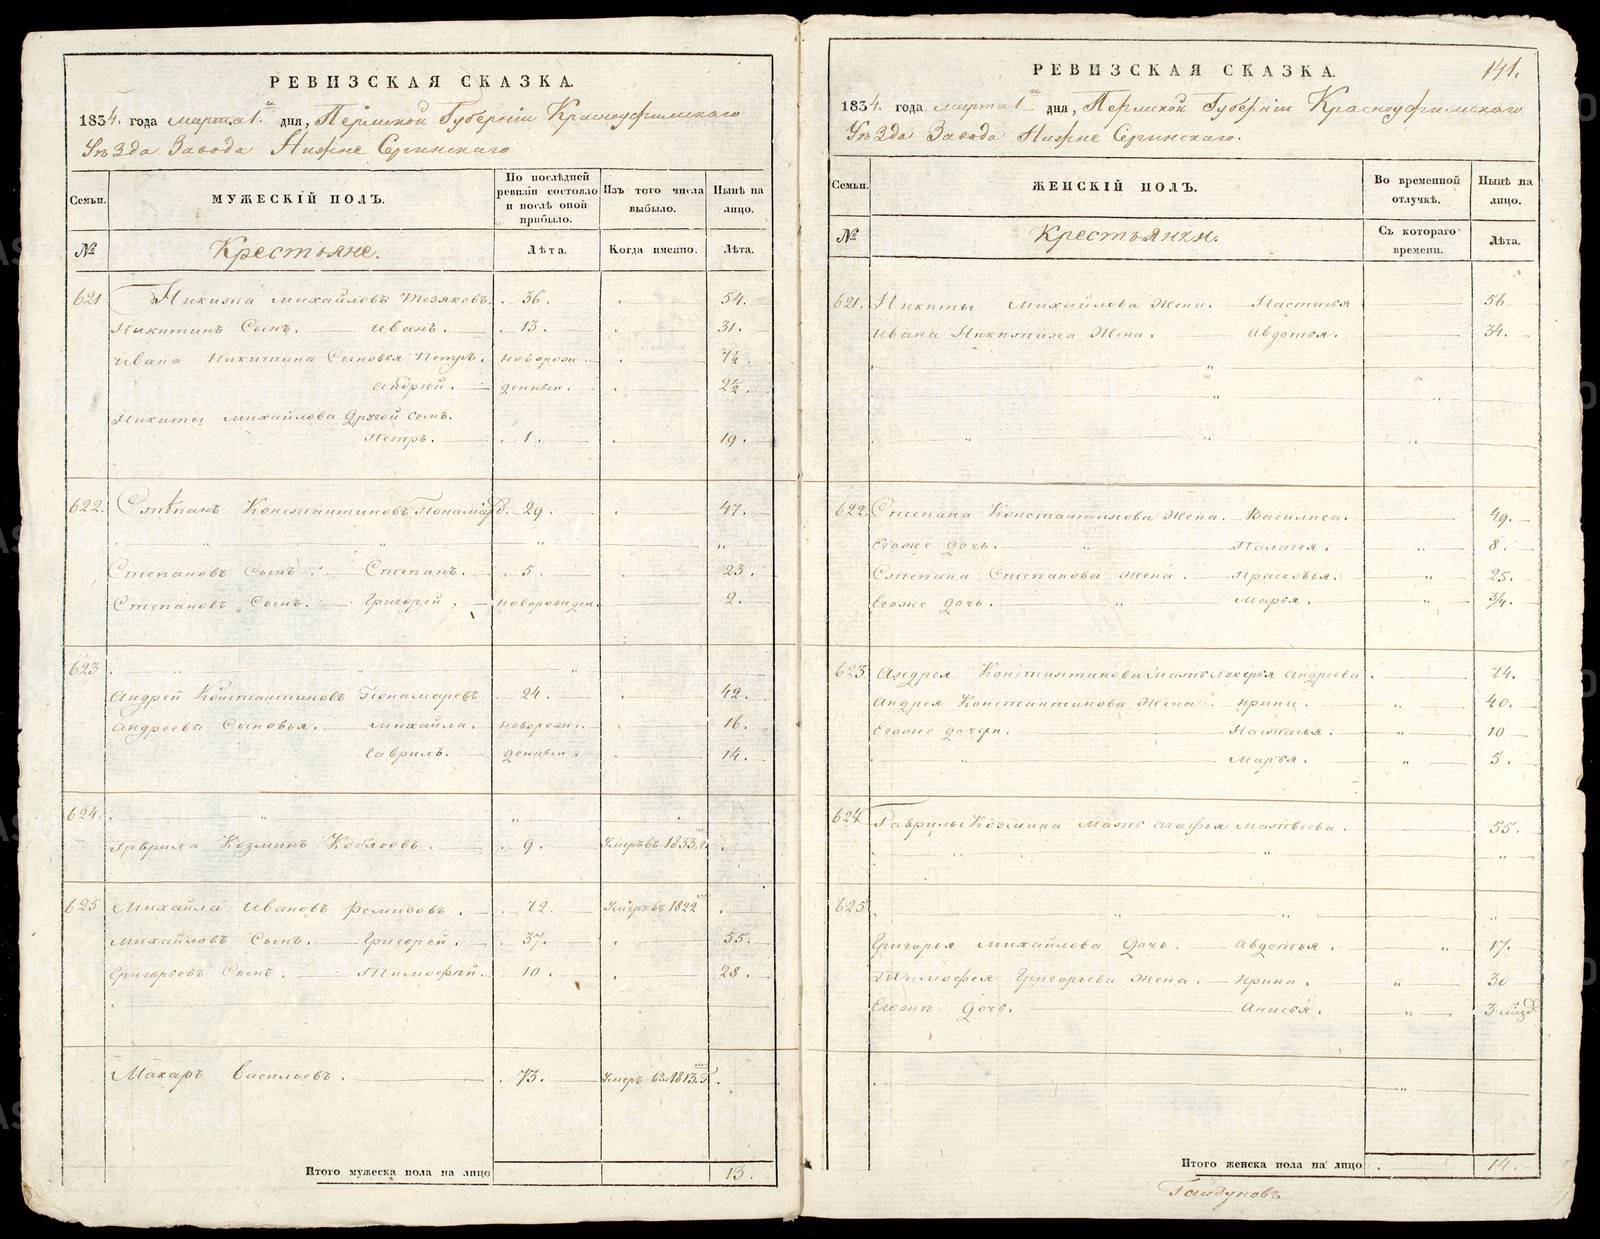 РЕВИЗСКАЯ СКАЗКА.
1834. года марта 1го дня, Пермской Губерніи Красноуфимскаго
Уѣзда Завода Нижне Сергинскаго
Семьи. МУЖЕСКІЙ ПОЛЪ. По послѣдней ревизіи состояло и послѣ оной прибыло. Изъ того числа выбыло. Нынѣ на лицо.
№ Крестьяне. Лѣта. Когда именно. Лѣта.
621 Никита Михайловъ Тезяковъ. 36. 54.
Никитинъ Сынъ. Иванъ. 13. 31.
Ивана Никитина Сыновья Петръ. новорож 7½
Андрѣй. денныи. 2½.
Никиты Михайлова Другой сынъ.
Петръ. 1. 19.
622. Степанъ Константиновъ Пономар. 29. 47.
Степановъ Сынъ. Степанъ. 5. 23.
Степановъ Сынъ. Григорей. новорожден. 2.
623
Андрей Константиновъ Пономаревъ 24. 42.
Андреевы Сыновья. Михайла. новорож. 16.
Гаврилъ. денныи. 14.
624.
Гаврила Козминъ Кобяковъ. 9. Умеръ въ 1833.
625 Михайла Ивановъ Ремизовъ. 72. Умеръ въ 1822
Михайловъ Сынъ. Григорей. 37. 55.
Григорьевъ Сынъ. Тимофѣй. 10. 28.
Макаръ Васильевъ. 73. Умеръ въ 1813. Г.
Итого мужеска пола на лицо 13.
РЕВИЗСКАЯ СКАЗКА. 141.
1834. года марта 1го дня, Пермской Губерніи Красноуфимскаго
Уѣзда Завода Нижне Сергинскаго.
Семьи. ЖЕНСКІЙ ПОЛЪ. Во временной отлучкѣ. Нынѣ на лицо.
№ Крестьянки. Съ котораго времени. Лѣта.
621. Никиты Михайлова Жена. Настасья 56.
Ивана Никитина Жена. Авдотья. 34.
622. Степана Константинова Жена. Василиса. 49.
Егоже дочь. Палагья. 8.
Степана Степанова Жена. Прасковья. 25.
Егоже дочь. Марья. ¾.
623. Андрея Константинова мать Лукерья Андреева 74.
Андрея Константинова Жена. Ирина. 40.
Егоже дочери. Настасья. 10
Марья. 5.
624 Гаврилы Козмина мать Агафья Матвеева. 55.
625.
Григорья Михайлова Дочь. Авдотья. 17.
Тимофея Григорьева Жена. Ирина. 30
Егоже Дочь. Анисья. 3
Итого женска пола на лицо 14.